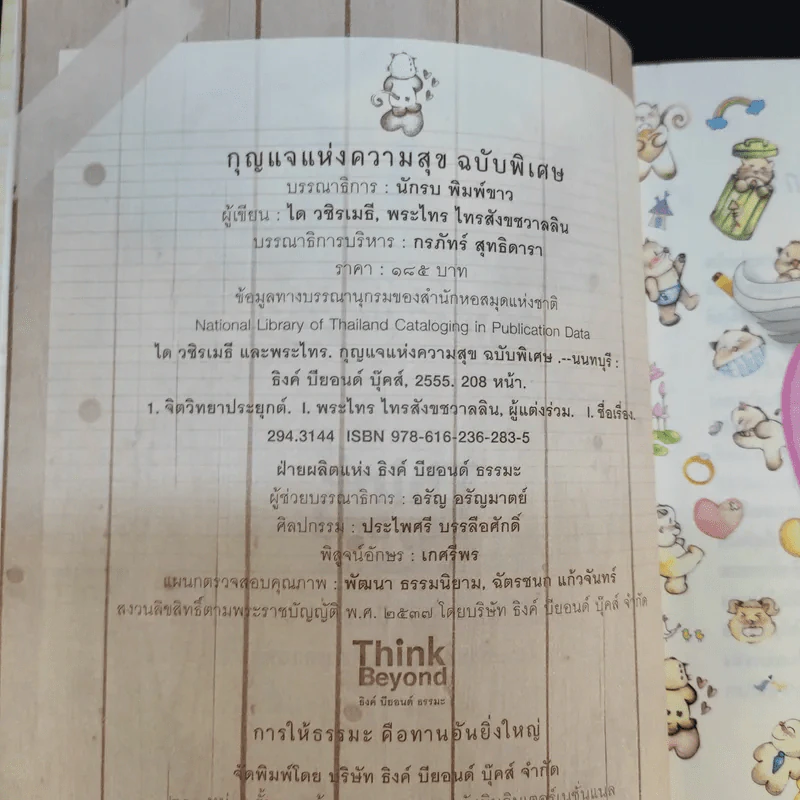 กุญแจแห่งความสุข ฉบับพิเศษ
บรรณาธิการ : นักรบ พิมพ์ขาว
ผู้เขียน : ได วชิรเมธี, พระไทร ไทรสังขชวาลลิน
บรรณาธิการบริหาร : กรภัทร์ สุทธิดารา
ราคา : ๑๘๕ บาท
ข้อมูลทางบรรณานุกรมของสำนักหอสมุดแห่งชาติ
National Library of Thailand Cataloging in Publication Data
ได วชิรเมธี และพระไทร. กุญแจแห่งความสุข ฉบับพิเศษ .--นนทบุรี :
ธิงค์ บียอนด์ บุ๊คส์, 2555. 208 หน้า.
1. จิตวิทยาประยุกต์. I. พระไทร ไทรสังขชวาลลิน, ผู้แต่งร่วม. I. ชื่อเรื่อง.
294.3144 ISBN 978-616-236-283-5
ฝ่ายผลิตแห่ง ธิงค์ บียอนด์ ธรรมะ
ผู้ช่วยบรรณาธิการ : อรัญ อรัญมาตย์
ศิลปกรรม : ประไพศรี บรรลือศักดิ์
พิสูจน์อักษร : เกศรีพร
แผนกตรวจสอบคุณภาพ : พัฒนา ธรรมนิยาม, ฉัตรชนก แก้วจันทร์
สงวนลิขสิทธิ์ตามพระราชบัญญัติ พ.ศ. ๒๕๓๗ โดยบริษัท ธิงค์ บียอนด์ บุ๊คส์ จำกัด
Think
Beyond
ธิงค์ บียอนด์ ธรรมะ
การให้ธรรมะ คือทานอันยิ่งใหญ่
จัดพิมพ์โดย บริษัท ธิงค์ บียอนด์ บุ๊คส์ จำกัด